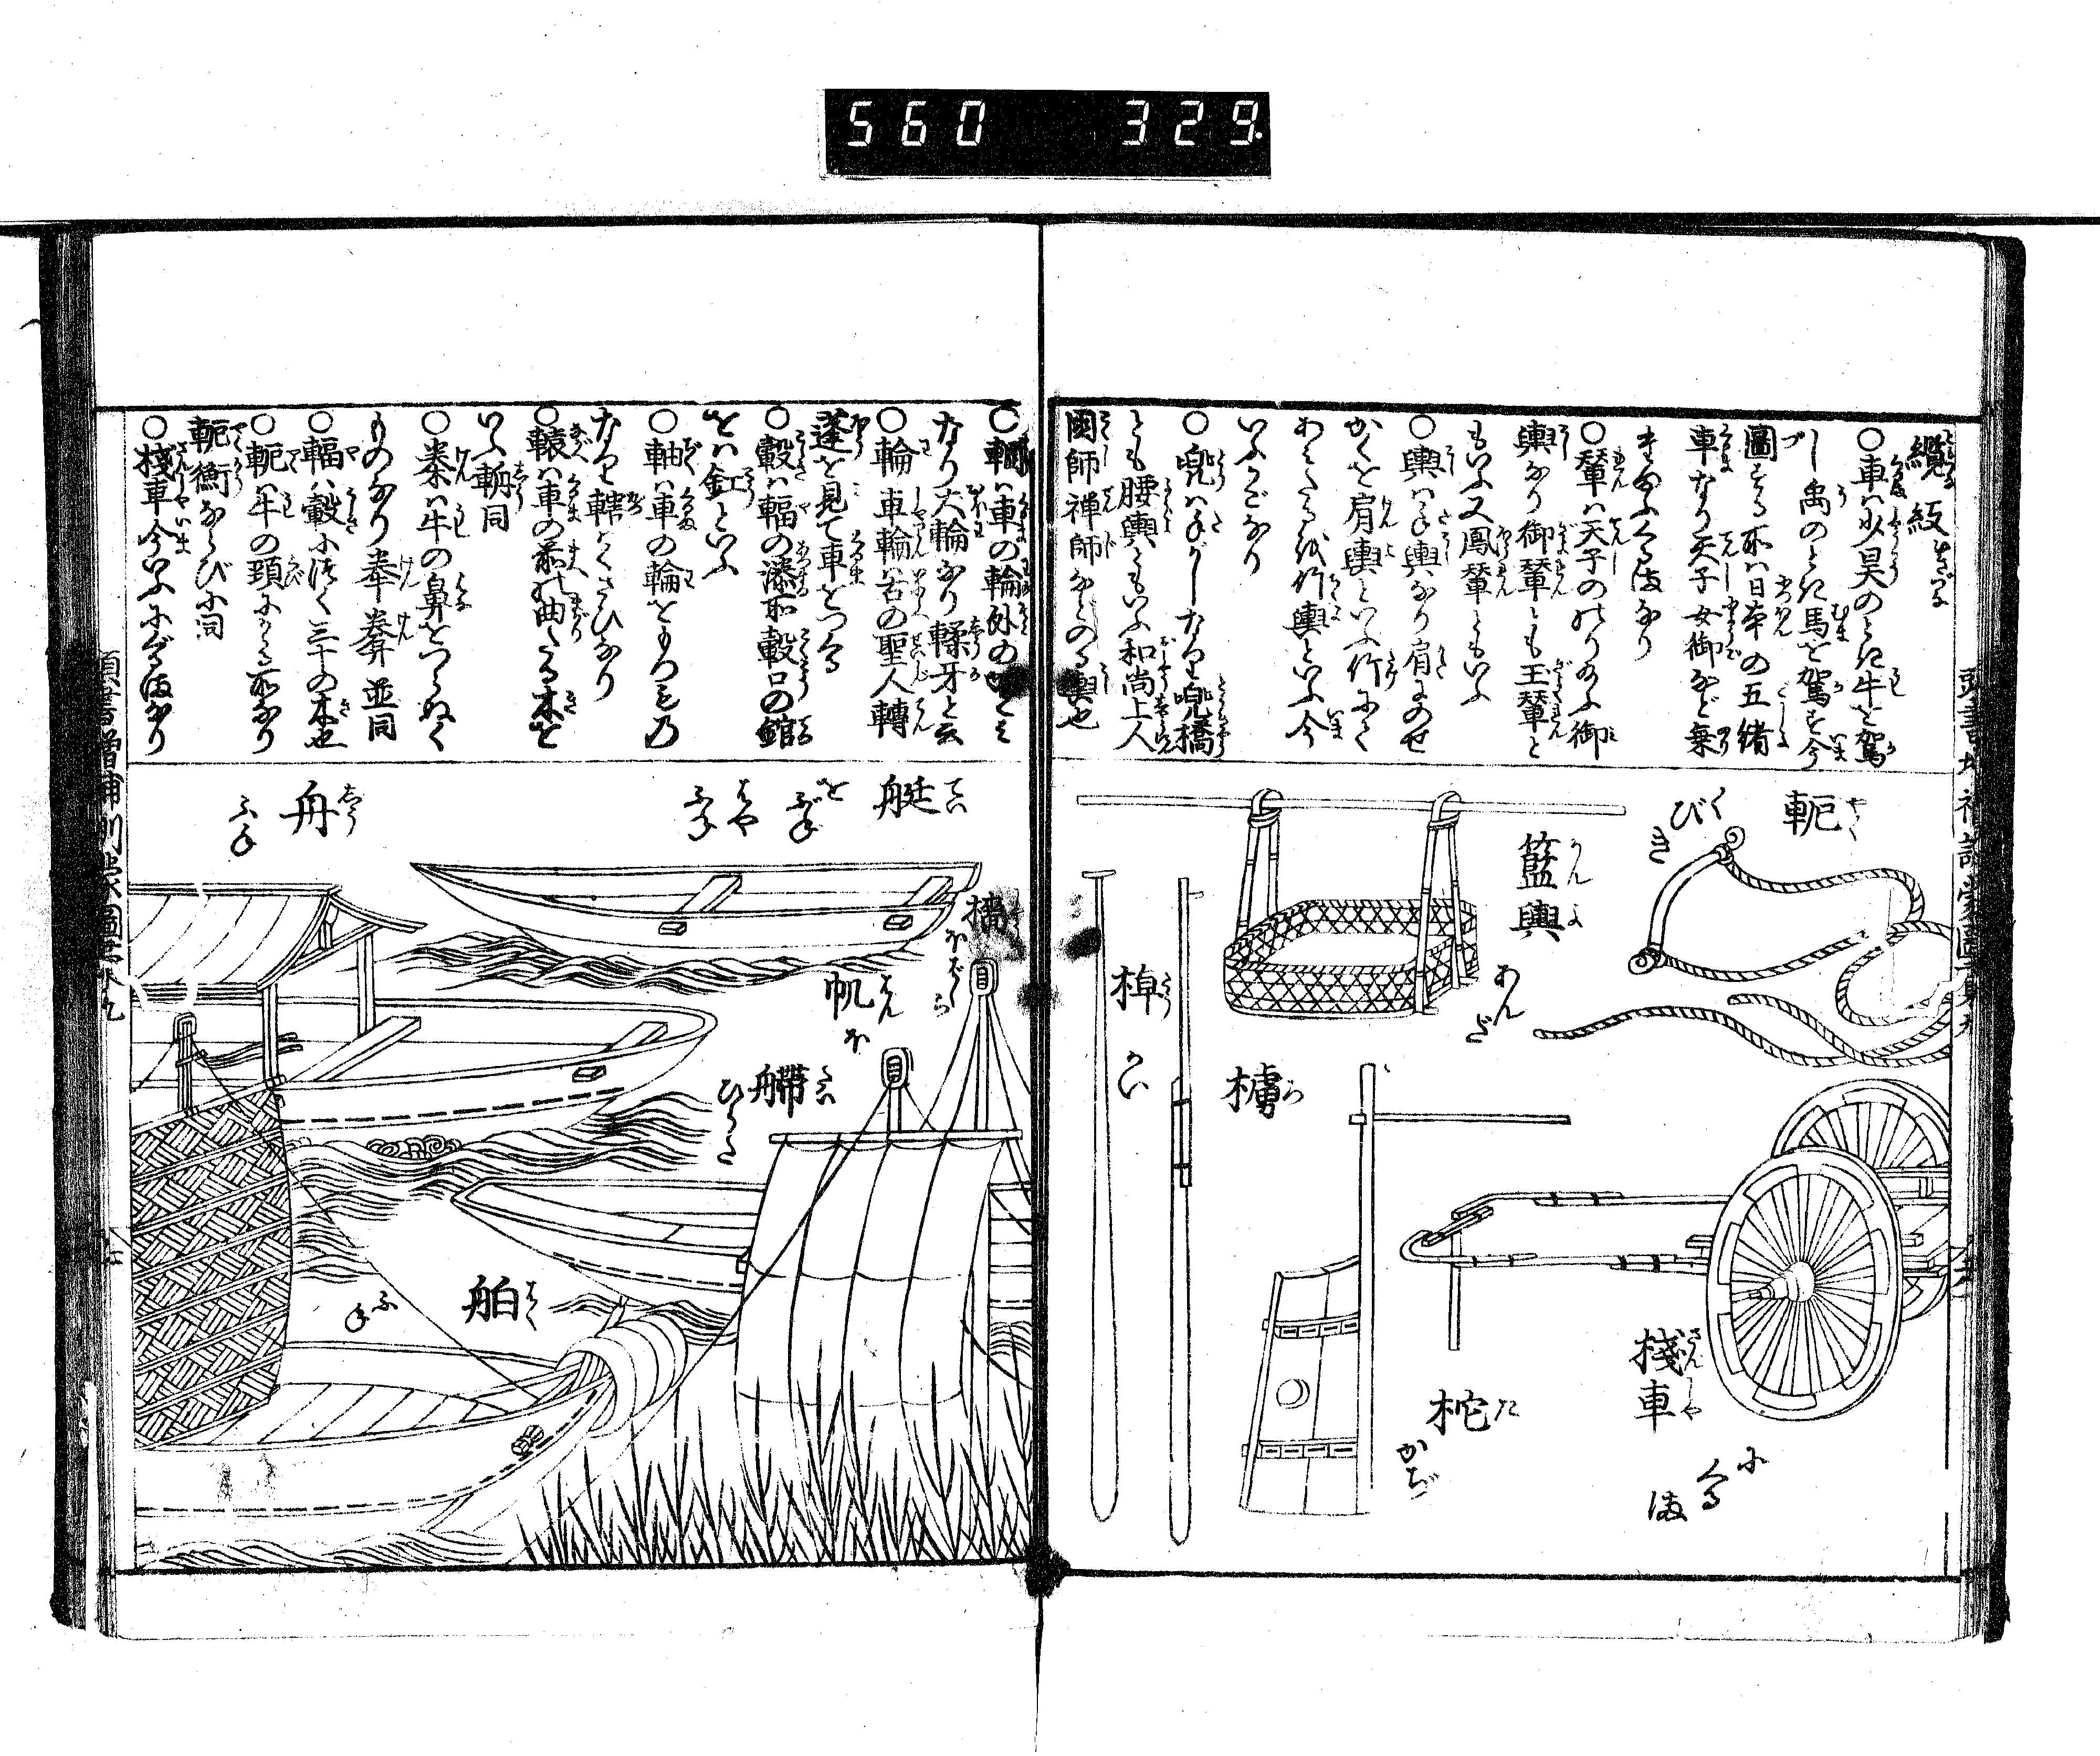 560 329
纜 綅
○車ハ少昊のとき牛を駕
し禹のとき馬を駕す今
圖する所ハ日本の五緒
車なり天子女御など乗
たまふくるまなり
○輦ハ天子ののりたまふ御
輿なり御輦とも玉輦と
もいふ又鳳輦ともいふ
○輿ハたごしなり肩にのせ
かくを肩輿といふ竹にて
あミたるを竹輿といふ今
いふかごなり
○兜ハたごしなり兜橋
とも腰輿ともいふ和尚上人
國師禅師などのる輿也
軛 やく くびき
籃輿 らんよ あんだ
棹 たう かい
櫓 ろ
柁 だ かぢ
棧車 さんしや にぐるま
○輞ハ車の輪外の
なり大輪なり輮牙と云
○輪 車輪ハ古の聖人轉
蓬を見て車をつくる
○轂ハ輻の湊所轂口の錧
をハ釭といふ
○軸ハ車の輪をもつもの
なり轄ハくさびなり
○轅ハ車の前の曲たる木を
いふ輈同
○桊ハ牛の鼻をつらぬく
ものなり 牶 並同
○輻ハ轂につく三十の木也
○軛ハ牛の頚にかくる所なり
軶衡ならびに同
○棧車今いふにぐるまなり
艇 てい をぶね はやふね
舟 しう ふね
檣 ほばしら
帆 はん ほ
艜 たい ひらた
舶 はく ふね
頭書増補訓蒙圖彙卷九